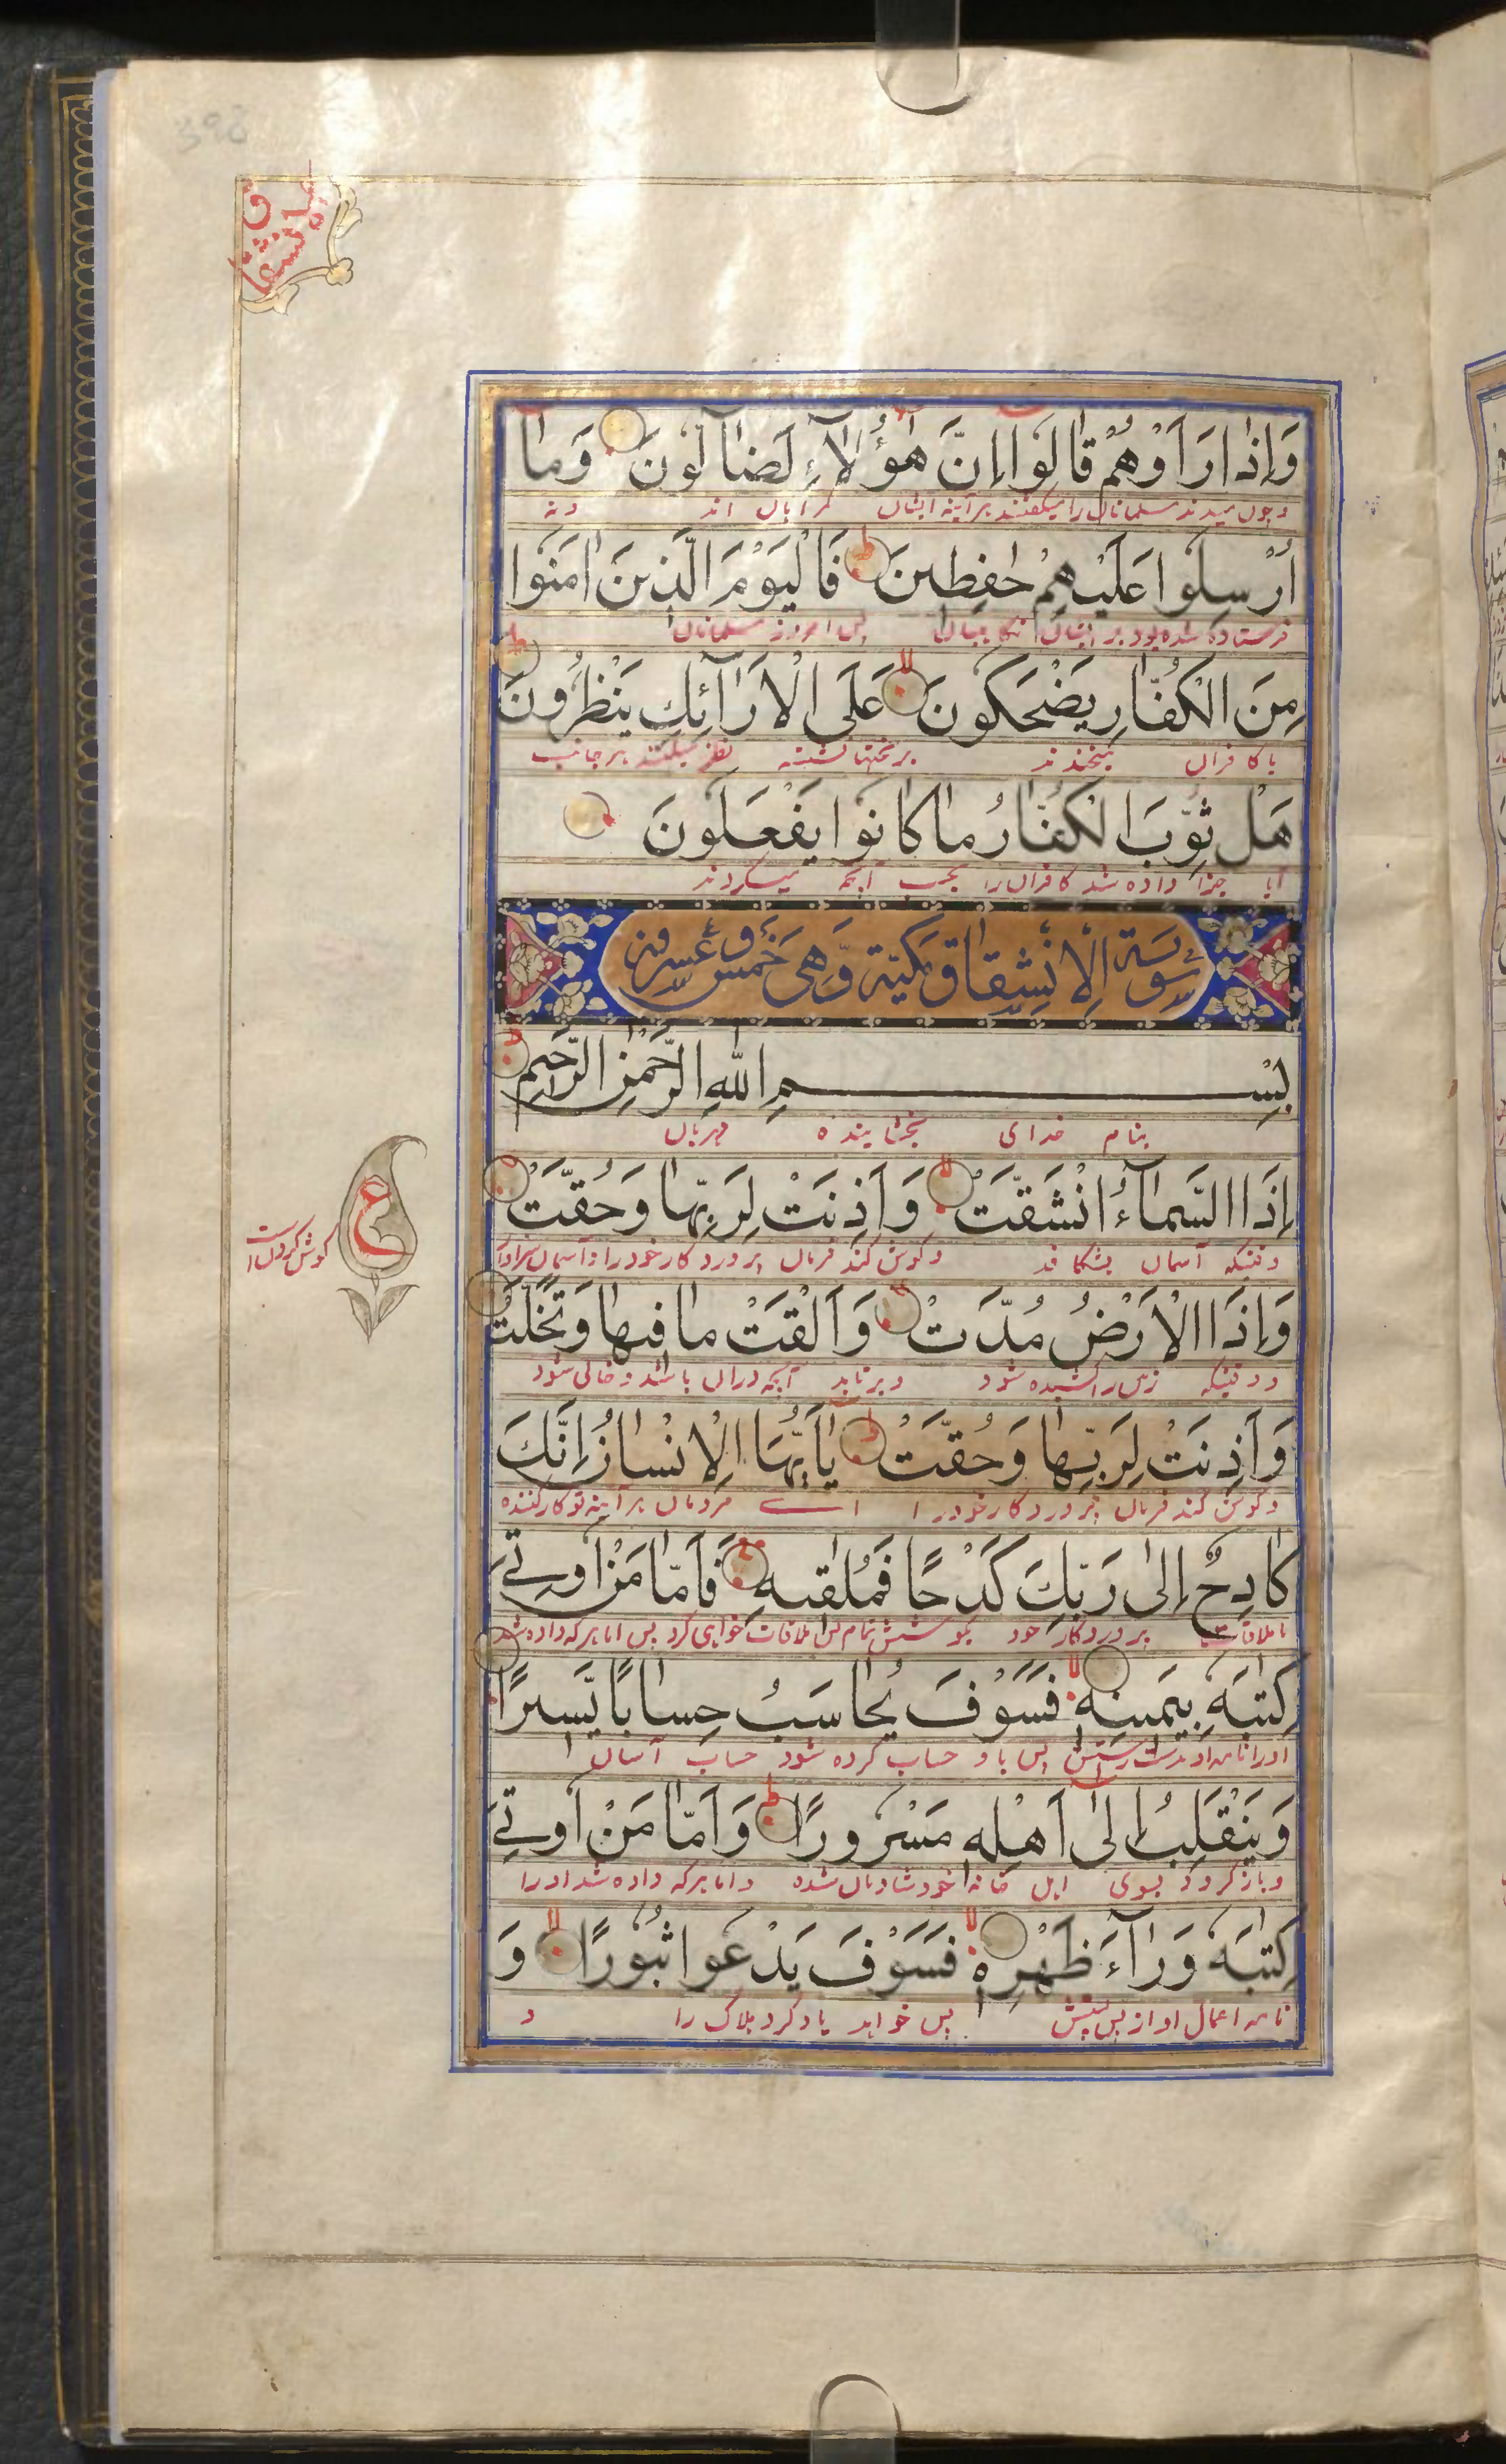 وَاِذَا رَاَوْهُمْ قَالُوا اِنَّ هٰؤُلَاءِ لَضَالُّونَ وَمَا
و چون میدیدند مسلمانان را میگفتند هر آینه ایشان گمراهان اند و نه
اُرْسِلُوا عَلَيْهِمْ حٰفِظِينَ فَالْيَوْمَ الَّذِينَ اٰمَنُوا
فرستاده شده بود بر ایشان نگاهبانان پس امروز مسلمانان
مِنَ الْكُفَّارِ يَضْحَكُونَ عَلَى الْاَرَآئِكِ يَنْظُرُونَ
با کافران میخندند بر تختها نشسته نظر میکنند هر جانب
هَلْ ثُوِّبَ الْكُفَّارُ مَا كَانُوا يَفْعَلُونَ
آیا جزا داده شد کافران را بحسب آنچه میکردند
سُورَةُ الْاِنْشِقَاقِ مَكِّيَّة وَّهِىَ خَمْس وَّ عِشْرُونَ
بِسْمِ اللّٰهِ الرَّحْمٰنِ الرَّحِيمِ
بنام خدای بخشاینده مهربان
اِذَا السَّمَآءُ انْشَقَّتْ وَاَذِنَتْ لِرَبِّهَا وَحُقَّتْ
وقتیکه آسمان بشکافد و گوش کند فرمان پروردگار خود را و آسمان سزاوار
گوش کردن است
ع
وَاِذَا الْاَرْضُ مُدَّتْ وَاَلْقَتْ مَا فِيهَا وَتَخَلَّتْ
و وقتیکه زمین را کشیده شود و برتابد آنچه دران باشد و خالی شود
وَاَذِنَتْ لِرَبِّهَا وَحُقَّتْ يَا اَيُّهَا الْاِنْسَانُ اِنَّكَ
و گوش کند فرمان پروردگار خود را اے مردمان هر آینه تو کار کننده
كَادِحٌ اِلٰى رَبِّكَ كَدْحًا فَمُلٰقِيهِ فَاَمَّا مَنْ اُوتِيَ
تا ملاقات پروردگار خود بکوشش تمام پس ملاقات خواهی کرد پس اما هر که داده شد
كِتٰبَهُ بِيَمِينِهِ فَسَوْفَ يُحَاسَبُ حِسَابًا يَّسِيرًا
او را نامه او بدست راستش پس با او حساب کرده شود حساب آسان
وَيَنْقَلِبُ اِلٰى اَهْلِهِ مَسْرُورًا وَاَمَّا مَنْ اُوتِيَ
و باز گردد بسوی اهل خانه خود شادمان شده و اما هر که داده شد او را
كِتٰبَهُ وَرَآءَ ظَهْرِهِ فَسَوْفَ يَدْعُوا ثُبُورًا وَ
نامه اعمال او از پس پشتش پس خواهد یاد کرد هلاک را و